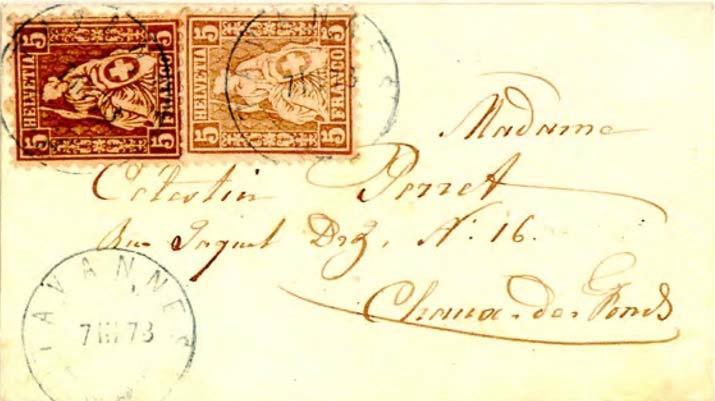 5 5 5 5
HELVETIA
FRANCO
5 5 5 5
HELVETIA
FRANCO
7 III 73
Madame
Célestin Perret
Rue Jaquet Drz, N: 16.
Chaux-de-Fonds
TAVANNES
7 III 73